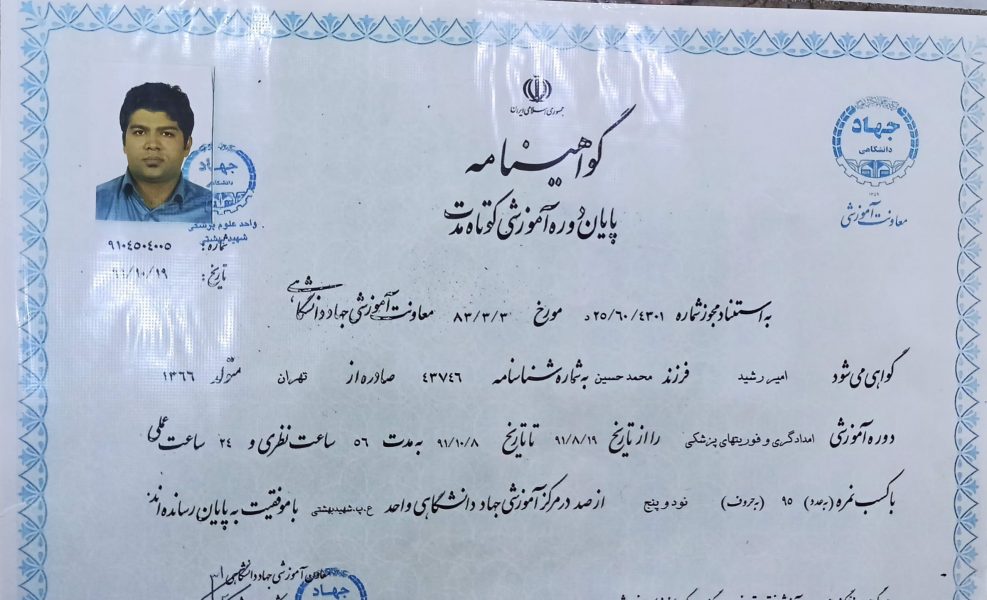 جمهوری اسلامی ایران
گواهینامه
پایان دوره آموزشی کوتاه مدت
جهاد
دانشگاهی
معاونت آموزشی
جهاد
دانشگاهی
واحد علوم پزشکی
شهید بهشتی
شماره: ۹۱۰۴۵۰۴۰۰۵
تاریخ: ۹۱/۱۰/۱۹
به استناد مجوز شماره ۲۵/۶۰/۴۳۰۱د مورخ ۸۳/۳/۳ معاونت آموزشی جهاد دانشگاهی
گواهی می شود امیر رشید فرزند محمد حسین به شماره شناسنامه ۴۳۷۴۶ صادره از تهران متولد ۱۳۶۶
دوره آموزشی امدادگری و فوریتهای پزشکی را از تاریخ ۹۱/۸/۱۹ تا تاریخ ۹۱/۱۰/۸ به مدت ۵۶ ساعت نظری و ۲۴ ساعت عملی
با کسب نمره (به عدد) ۹۵ (به حروف) نود و پنج از صد در مرکز آموزشی جهاد دانشگاهی واحد ع.پ.شهید بهشتی با موفقیت به پایان رسانده اند.
معاون آموزشی جهاد دانشگاهی
جهاد